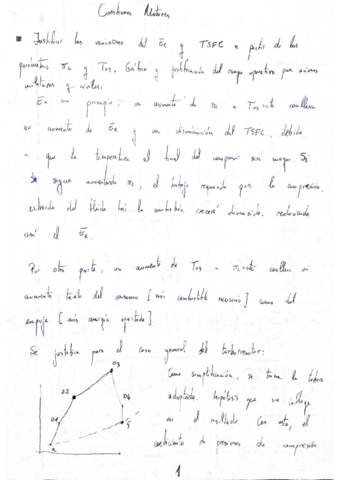 Cuestiones Motores
Justificar las variaciones del Ee y TSFC a partir de los
parámetros πc y T05. Gráfica y justificación del rango operativo para aviones
militares y civiles.
En un principio, un aumento de πc a T05 cste conlleva
un aumento de Ee y una disminución del TSFC, debido
a que la temperatura al final del compresor será mayor. Si
se sigue aumentando πc, el trabajo requerido por la compresión,
extraído del fluido tras la combustión, crecerá demasiado, reduciendo
así el Ee.
Por otra parte, un aumento de T05 a πc cste conlleva un
aumento tanto del consumo [más combustible necesario] como del
empuje [más energía aportada].
Se justifica para el caso general del turborreactor:
Como simplificación, se toma la tobera
adaptada. Hipótesis que no influye
en el resultado. Con esto, el
coeficiente de presiones de compresión
1